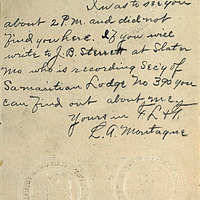 I was to see you
about 2 P.M. and did not
find you here. If you will
write to J.B. Sterrett at Slater
Mo who is recording Sec'y of
Samaritian Lodge No 390 you
can find out about me.
Yours in F L & T,
E. A. Montague